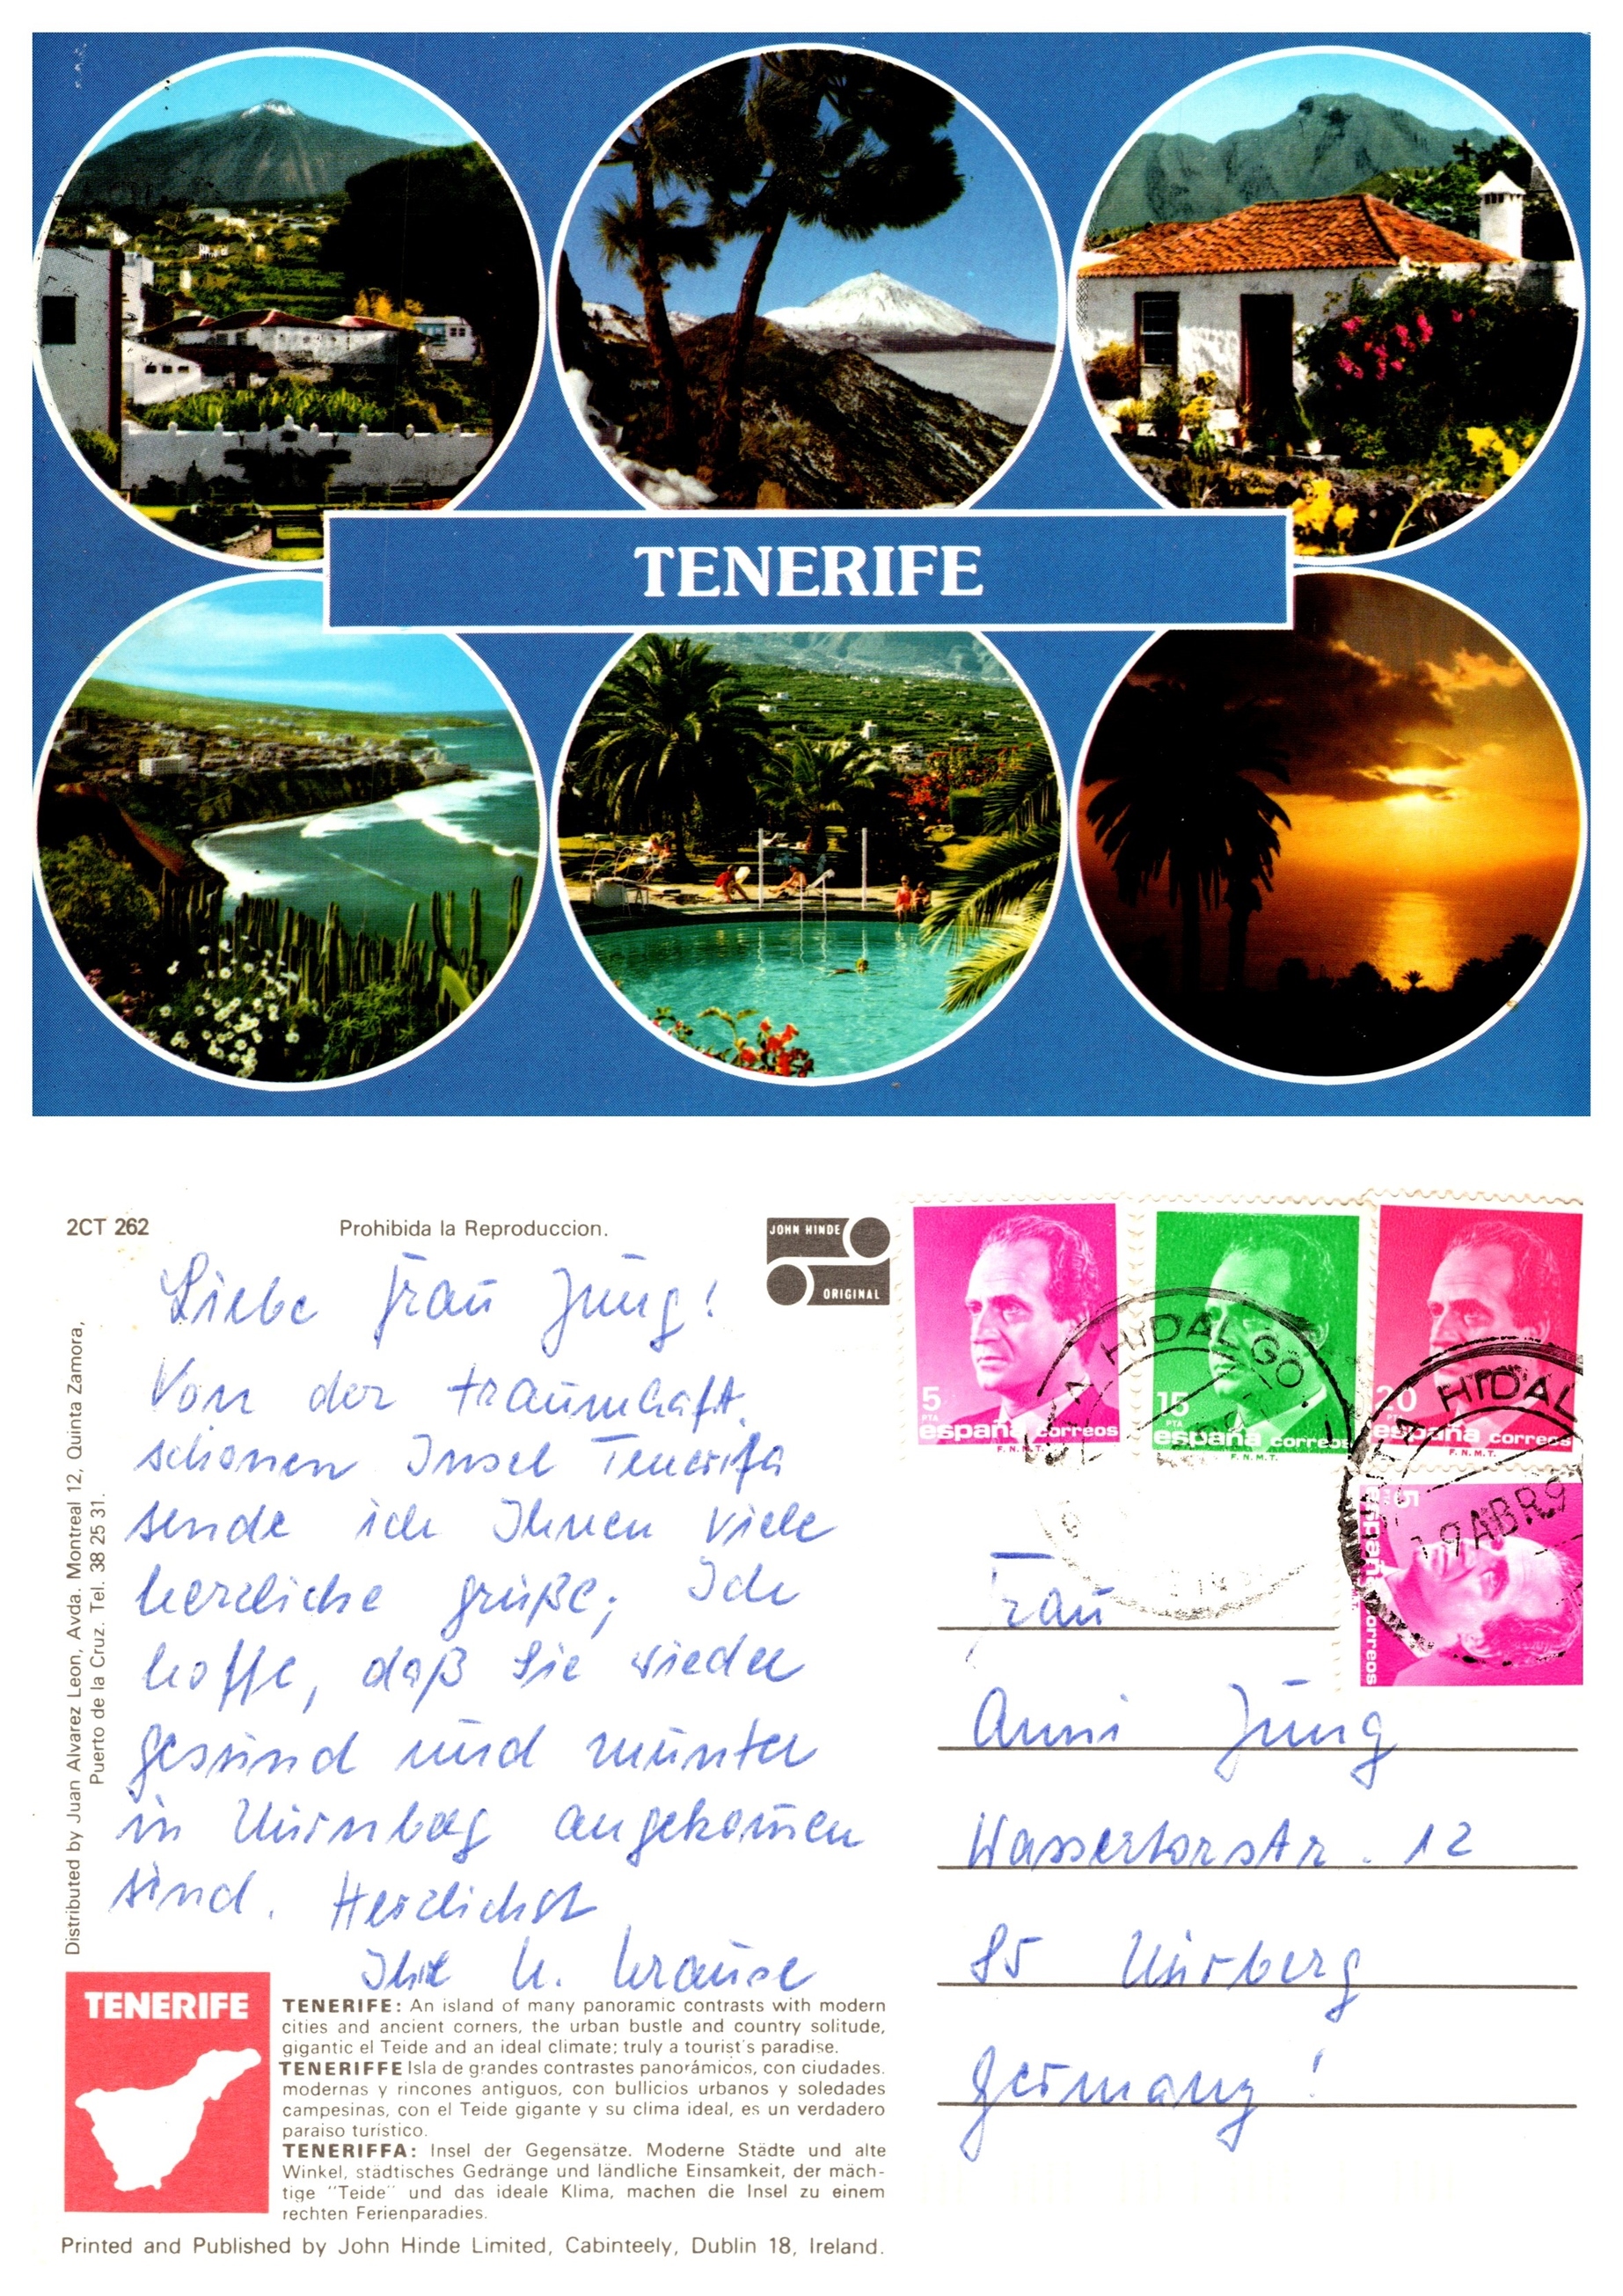 TENERIFE
2CT 262
Prohibida la Reproduccion.
JOHN HINDE
ORIGINAL
Liebe Frau Jung!
Von der traumhaft
schönen Insel Tenerifa
sende ich Ihnen viele
herzliche Grüße; Ich
hoffe, daß Sie wieder
gesund und munter
in Nürnberg angekom̄en
sind. Herzlichst
Ihre U. Krause
Distributed by Juan Alvarez Leon, Avda. Montreal 12, Quinta Zamora,
Puerto de la Cruz. Tel. 38 25 31.
5
PTA
españa correos
F.N.M.T.
15
PTA
españa correos
F.N.M.T.
20
PTA
españa correos
5
españa correos
HIDALGO
HIDAL
19 ABR 9
Frau
Anni Jung
Wassertorstr. 12
85 Nürberg
Germany!
TENERIFE
TENERIFE: An island of many panoramic contrasts with modern
cities and ancient corners, the urban bustle and country solitude,
gigantic el Teide and an ideal climate; truly a tourist's paradise.
TENERIFFE Isla de grandes contrastes panorámicos, con ciudades.
modernas y rincones antiguos, con bullicios urbanos y soledades
campesinas, con el Teide gigante y su clima ideal, es un verdadero
paraiso turistico.
TENERIFFA: Insel der Gegensätze. Moderne Städte und alte
Winkel, städtisches Gedränge und ländliche Einsamkeit, der mäch-
tige "Teide" und das ideale Klima, machen die Insel zu einem
rechten Ferienparadies.
Printed and Published by John Hinde Limited, Cabinteely, Dublin 18, Ireland.